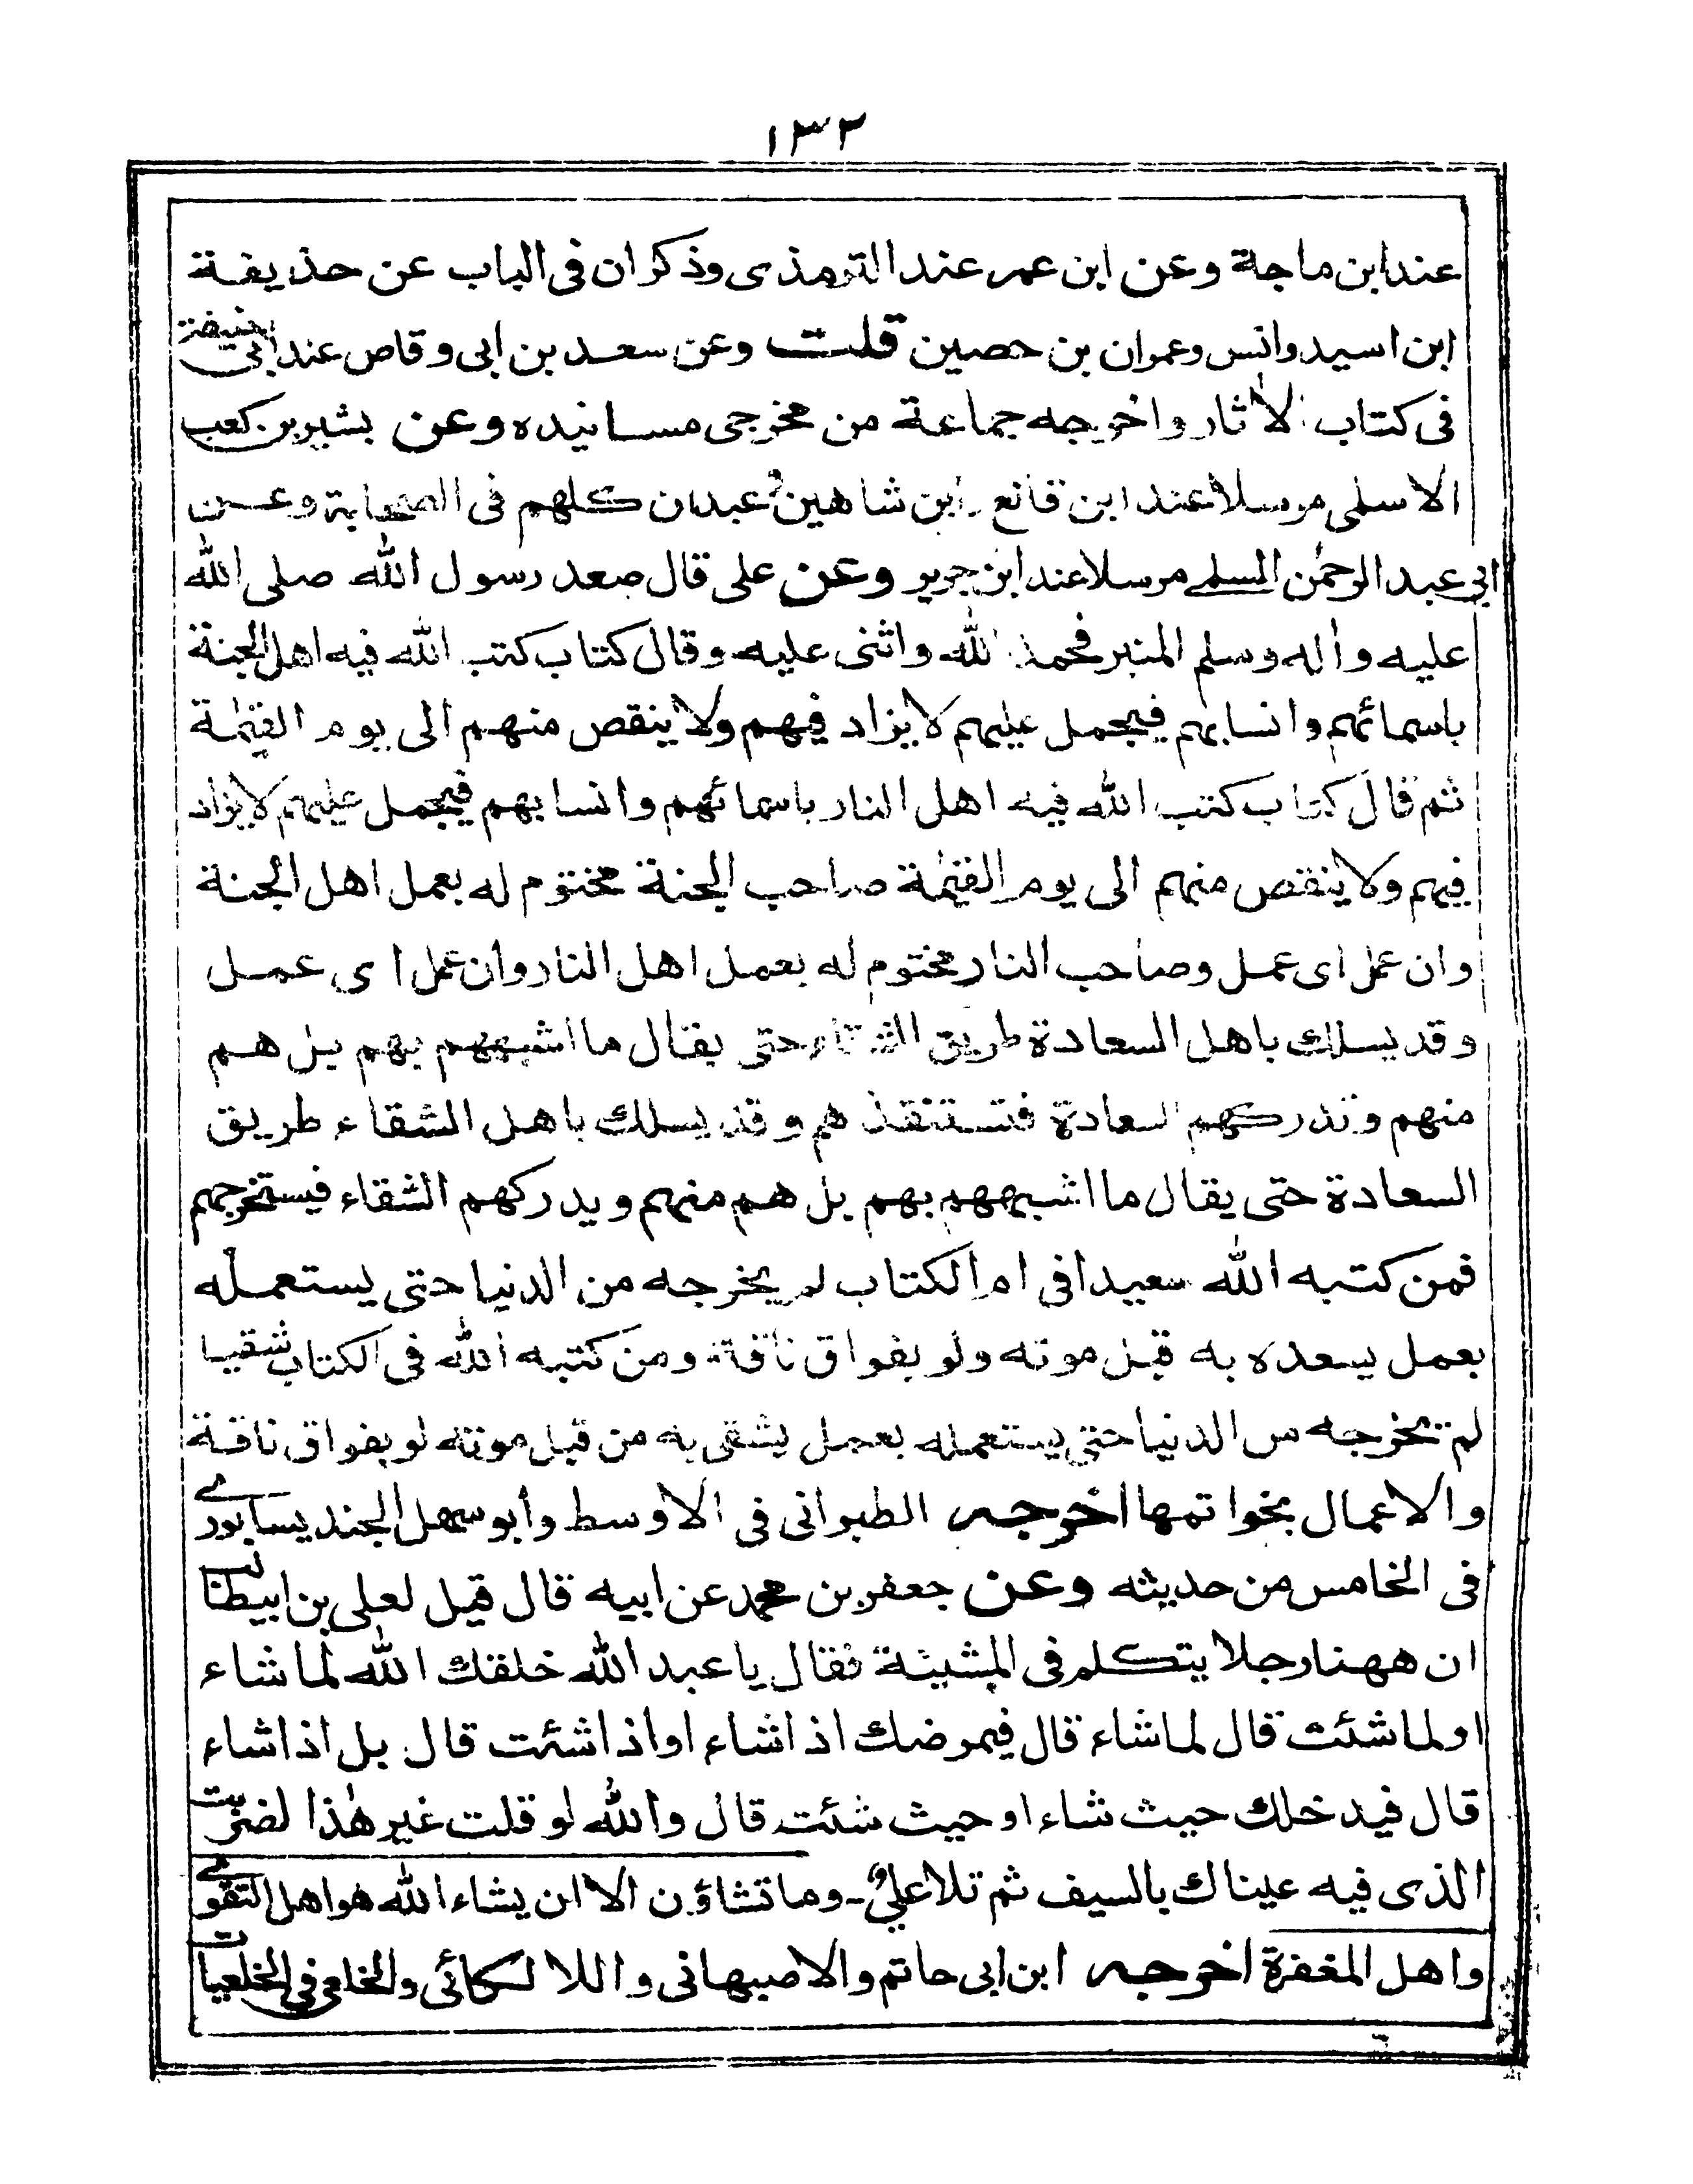 ١٣٢
عند ابن ماجة وعن ابن عمر عند الترمذى وذكر ان فى الباب عن حذيفة
ابن اسيد وانس وعمران بن حصين قلت وعن سعد بن ابى وقاص عند ابى حنيفة
فى كتاب الاٰثار واخرجه جماعة من مخرجى مسانيده وعن بشير بن كعب
الاسلمى مرسلا عند ابن قانع وابن شاهين وعبدان كلهم فى الصحابة وعن
ابى عبد الرحمٰن السلمى مرسلا عند ابن جرير وعن على قال صعد رسول الله صلى الله
عليه واٰله وسلم المنبر فحمد الله واثنى عليه وقال كتاب كتب الله فيه اهل الجنة
باسمائهم وانسابهم فيجمل عليهم لا يزاد فيهم ولا ينقص منهم الى يوم القيٰمة
ثم قال كتاب كتب الله فيه اهل النار باسمائهم وانسابهم فيجمل عليهم لا يزاد
فيهم ولا ينقص منهم الى يوم القيٰمة صاحب الجنة مختوم له بعمل اهل الجنة
وان عمل اى عمل وصاحب النار مختوم له بعمل اهل النار وان عمل اى عمل
وقد يسلك باهل السعادة طريق الشقاء حتى يقال ما اشبههم بهم بل هم
منهم وتدركهم السعادة فتستنقذهم وقد يسلك باهل الشقاء طريق
السعادة حتى يقال ما اشبههم بهم بل هم منهم ويدركهم الشقاء فيستخرجهم
فمن كتبه الله سعيدا فى ام الكتاب لم يخرجه من الدنيا حتى يستعمله
بعمل يسعده به قبل موته ولو بفواق ناقة ومن كتبه الله فى الكتاب شقيا
لم يخرجه من الدنيا حتى يستعمله بعمل يشقى به من قبل موته لو بفواق ناقة
والاعمال بخواتمها اخرجه الطبرانى فى الاوسط وأبو سهل الجنديسابورى
فى الخامس من حديثه وعن جعفر بن محمد عن ابيه قال قيل لعلى بن ابيطالب
ان ههنا رجلا يتكلم فى المشيئة فقال يا عبد الله خلقك الله لما شاء
او لما شئت قال لما شاء قال فيمرضك اذا شاء او اذا شئت قال بل اذا شاء
قال فيدخلك حيث شاء او حيث شئت قال والله لو قلت غير هٰذا لضربت
الذى فيه عيناك بالسيف ثم تلا علىٌّ - وما تشاؤن الا ان يشاء الله هو اهل التقوى
واهل المغفرة اخرجه ابن ابى حاتم والاصبهانى واللالكائى والخلعى فى الخلعيات